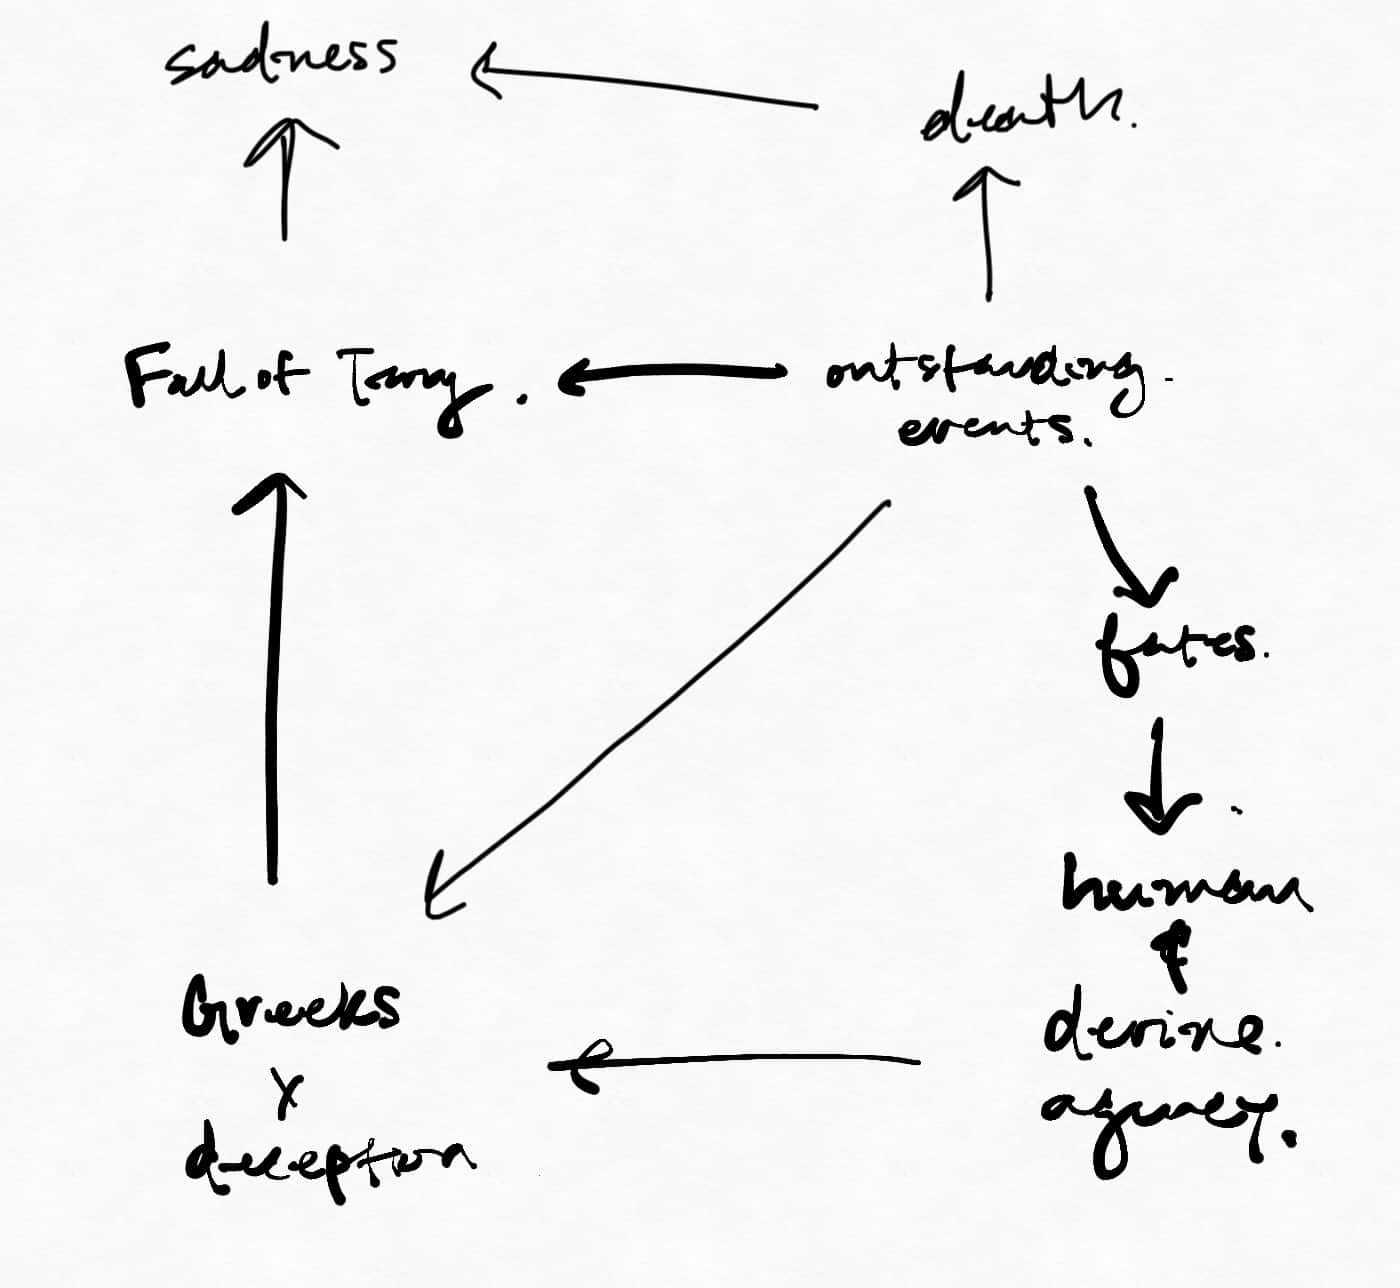 sadness
death.
Fall of Troy.
outstanding.
events.
fates.
human
&
devine.
agency.
Greeks
x
deception